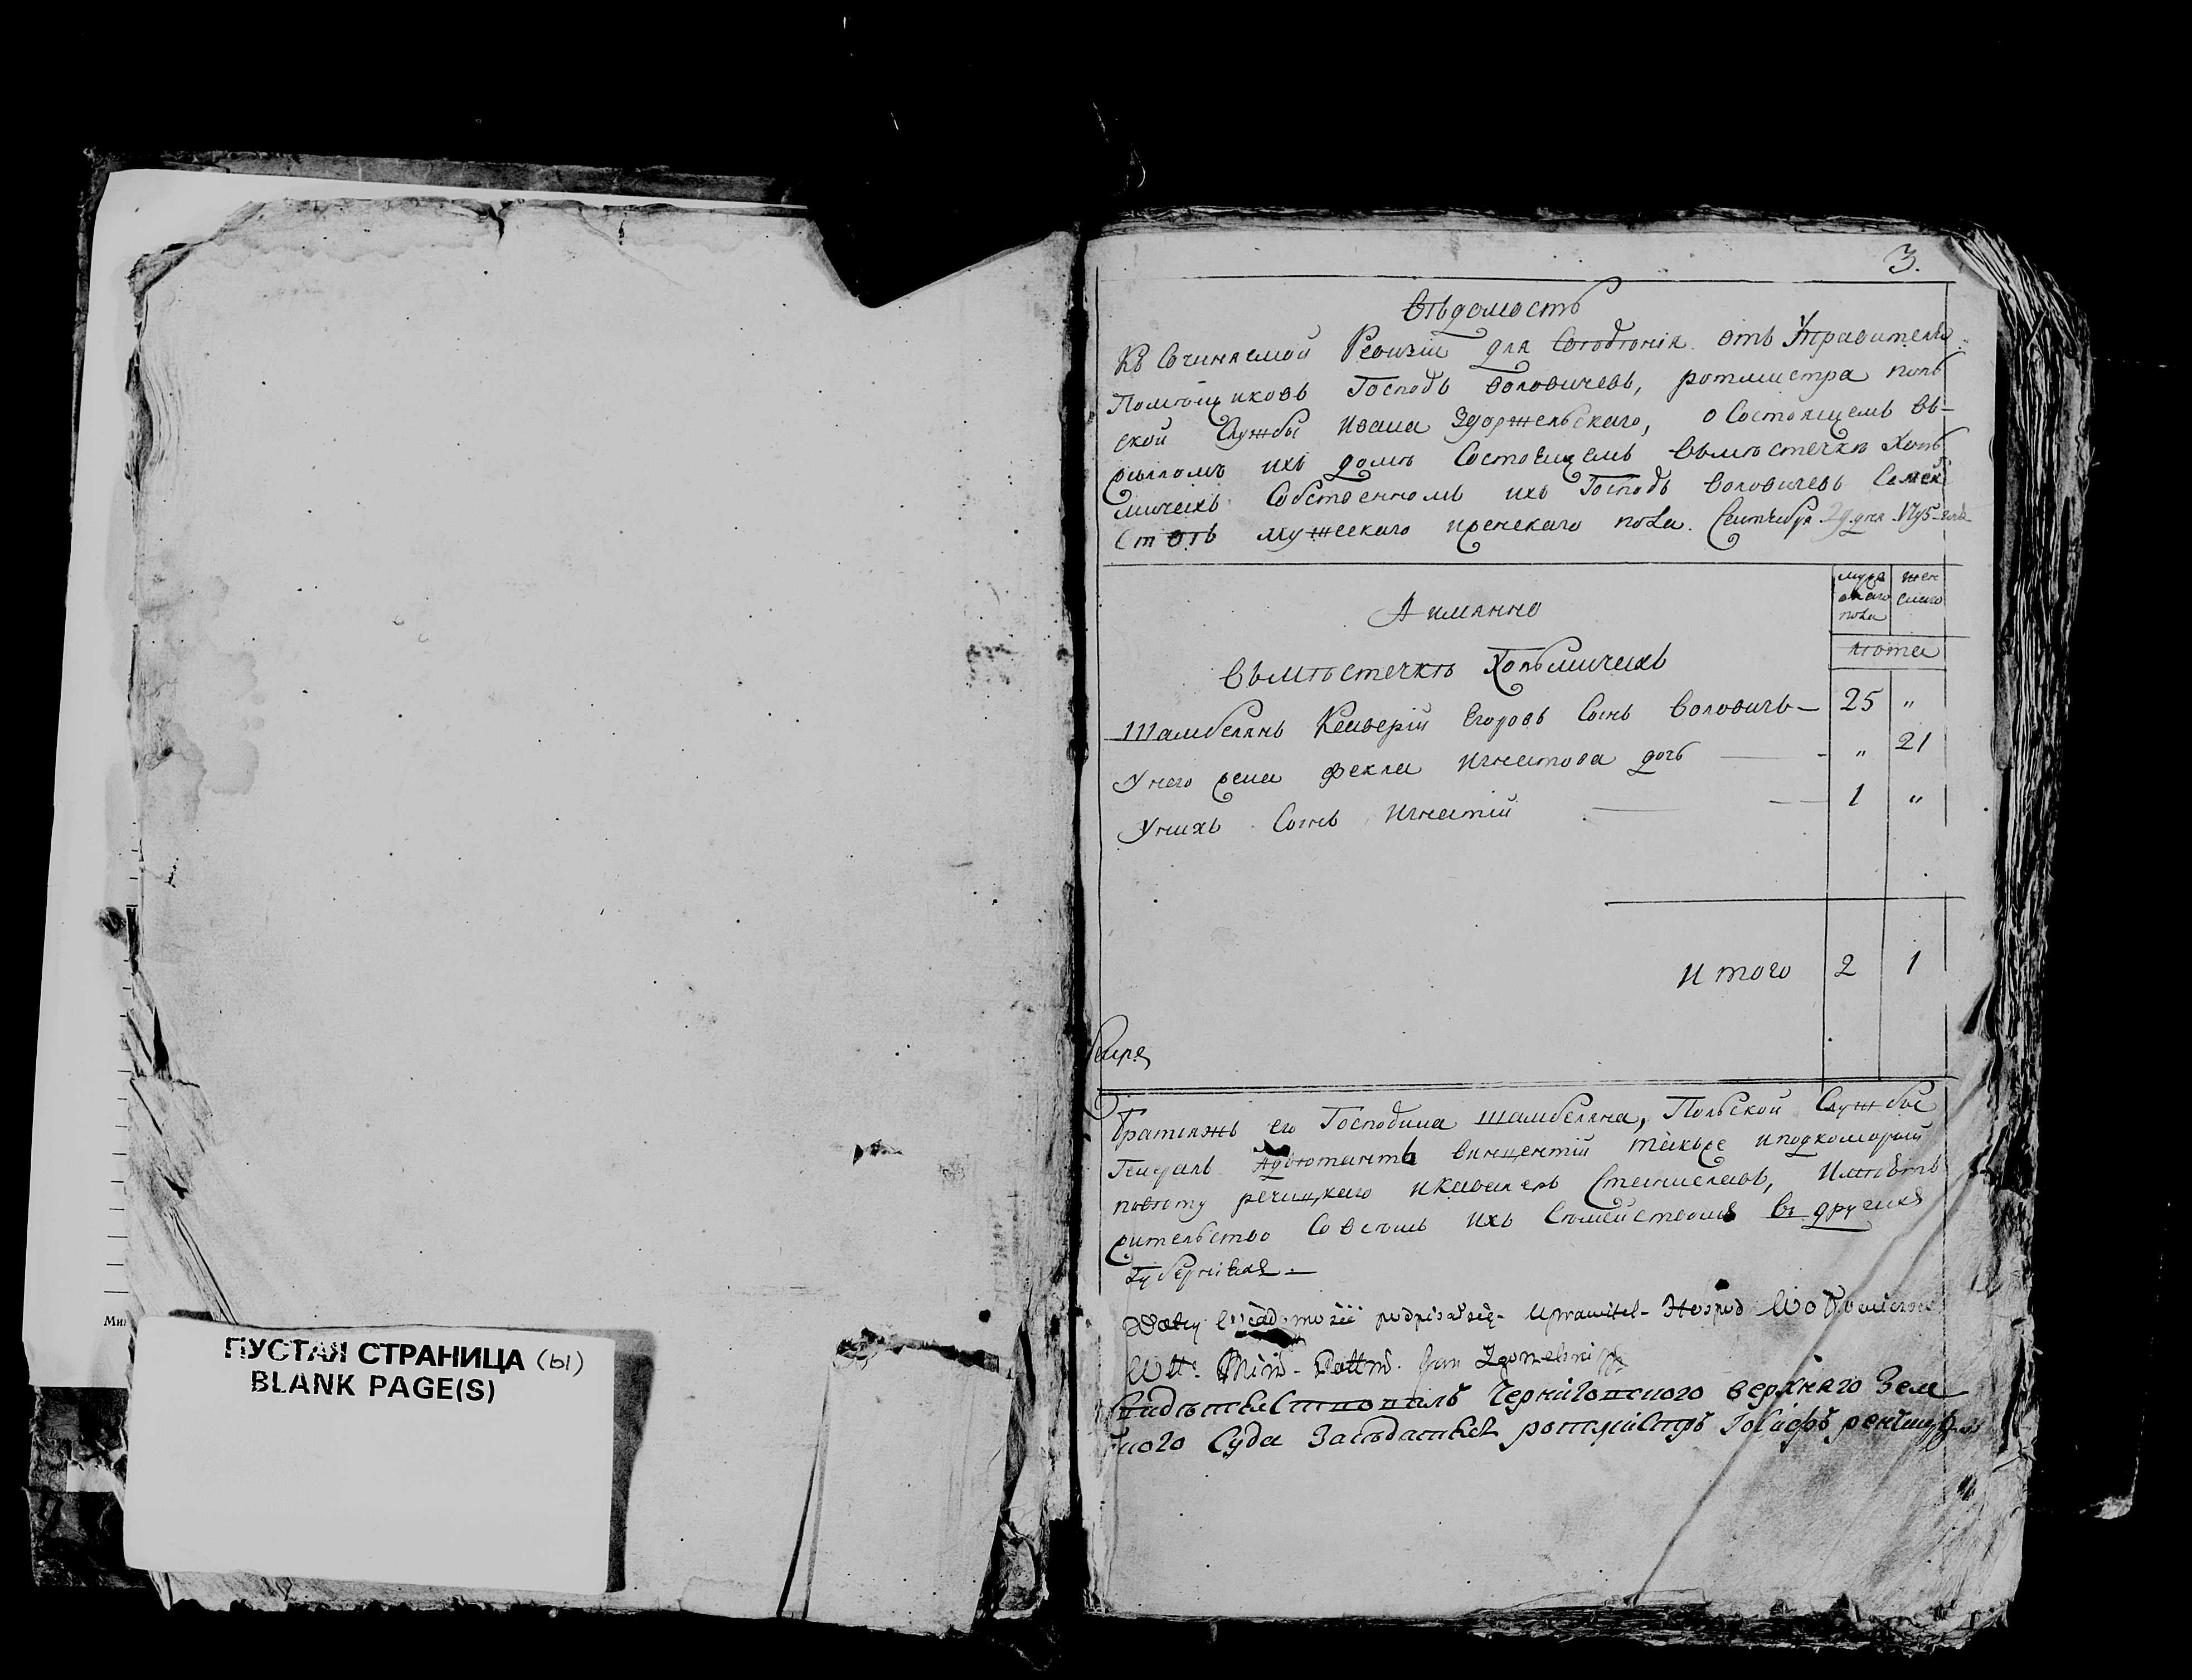 3.
Вѣдомость
Къ Сочиняемой Ревизіи для Сведѣнія отъ Управителя
Помѣщиковъ Господъ Воловичевъ, ротмистра поль
ской Службы Ивана Здоржельскаго, о Состоящемъ въ
жиломъ ихъ домѣ Состоящемъ вмѣстечкѣ Холь
мичахъ Собственномъ ихъ Господъ Воловичевъ Семей
Ствѣ мужескаго иженскаго пола. Сентября 29 дня 1795 года
муже
скаго
пола
жен
скаго
Аимянно
лѣта
Вмѣстечкѣ Холмичахъ
Шамбелянъ Ксаверій Егоровъ Сынъ Воловичъ — 25 "
Унего жена Фекла Игнатова дочь — " 21
Унихъ Сынъ Игнатій — 1 "
Итого 2 1
Братьяжъ его Господина шамбеляна, Польской Службы
Генералъ Адъютантъ Винцентій такъже иподкоморый
повѣту речицкаго икавалеръ Станиславъ, Имѣютъ
жительство Совсемъ ихъ Семействомъ въ другихъ
Губерніяхъ. —
podpisałsię Uprawitel Hospod Wołowiczow
Jan
Свидѣтелствовалъ Черниговского верхняго Зем
ского Суда Заседатель ротмистръ Іосифъ
ПУСТАЯ СТРАНИЦА (Ы)
BLANK PAGE(S)